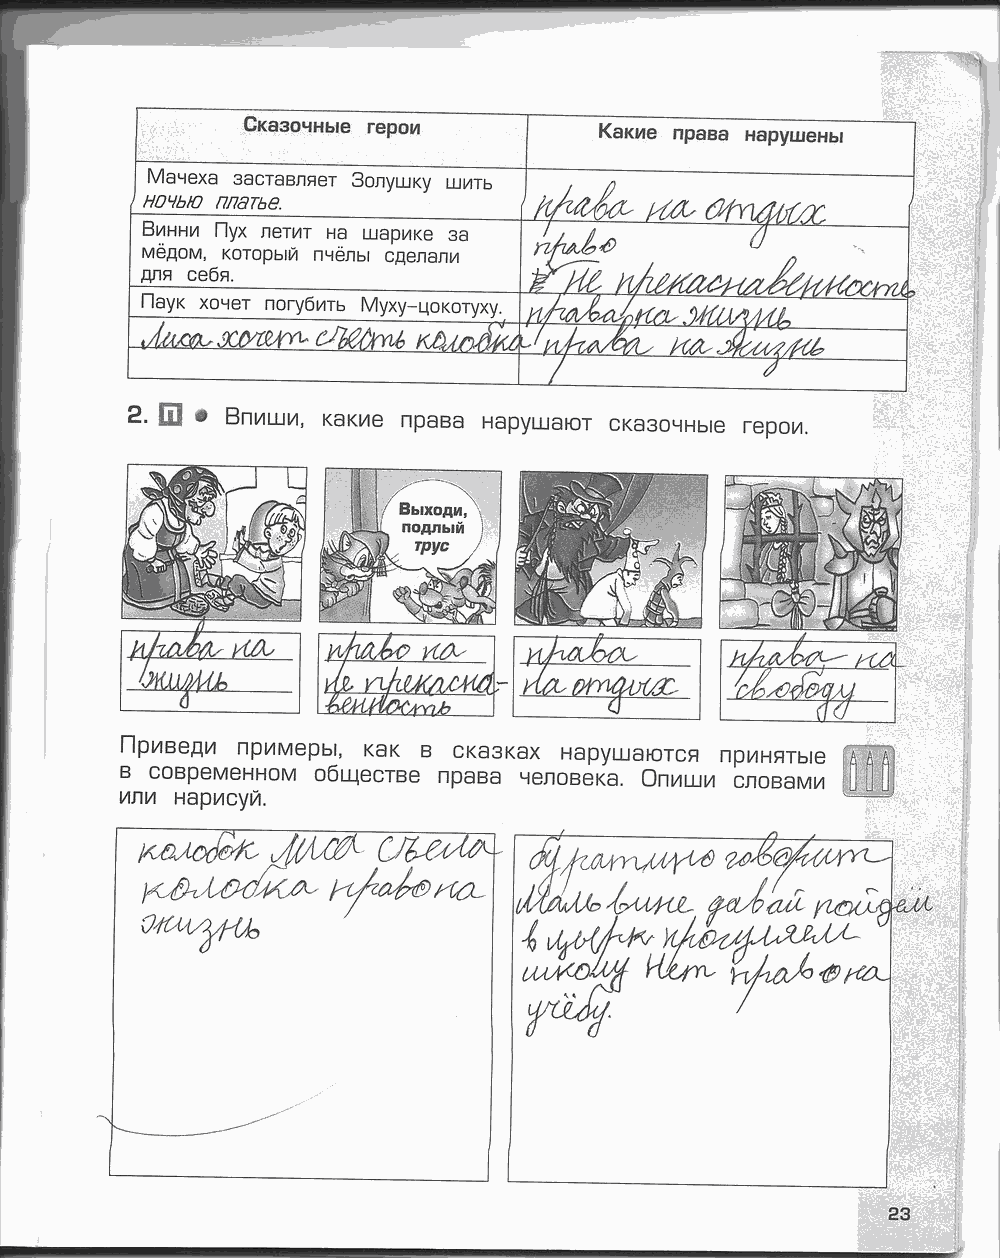 Сказочные герои
Какие права нарушены
Мачеха заставляет Золушку шить
ночью платье.
права на отдых
Винни Пух летит на шарике за
мёдом, который пчёлы сделали
для себя.
право
не прекаснавенность
Паук хочет погубить Муху-цокотуху.
права на жизнь
Лиса хочет съесть колобка
права на жизнь
2. П • Впиши, какие права нарушают сказочные герои.
Выходи,
подлый
трус
права на
жизнь
право на
не прекасна-
венность
права
на отдых
права на
свободу
Приведи примеры, как в сказках нарушаются принятые
в современном обществе права человека. Опиши словами
или нарисуй.
колобок Лиса съела
колобка право на
жизнь
буратино говорит
Мальвине давай пойдём
в цырк прогуляем
школу Нет право на
учёбу.
23